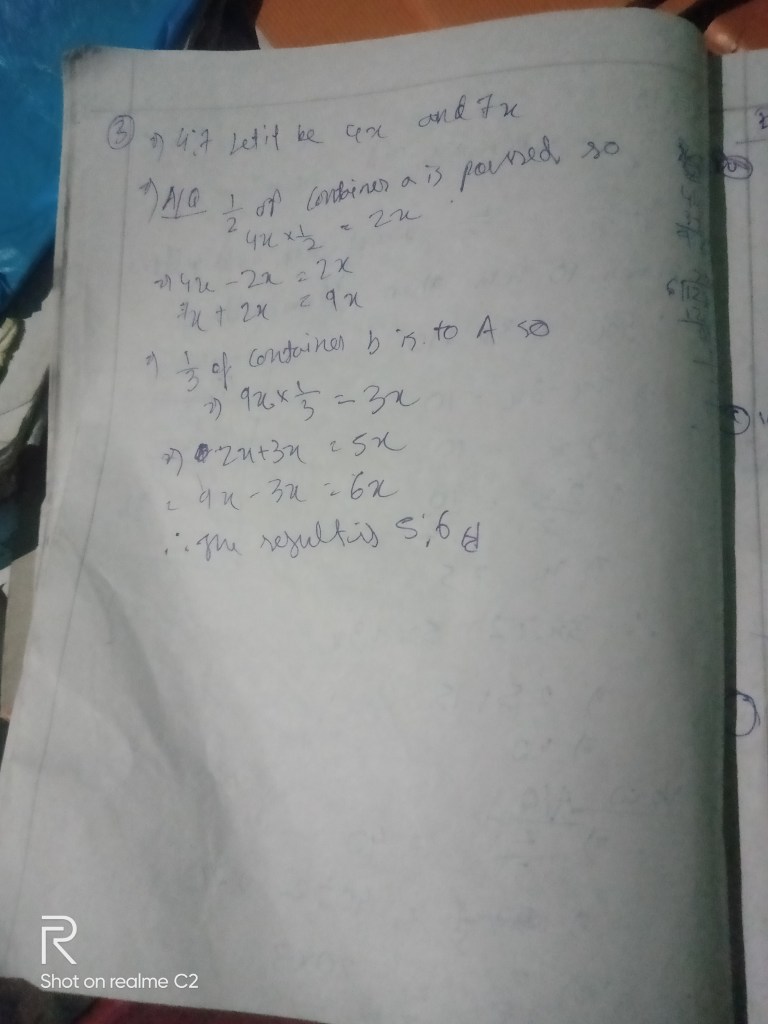 ③ ⇒ 4:7 Let it be 4x and 7x
⇒ A/Q 1/2 of container a is poured so
4x × 1/2 = 2x
⇒ 4x - 2x = 2x
7x + 2x = 9x
⇒ 1/3 of container b is to A so
⇒ 9x × 1/3 = 3x
⇒ 2x + 3x = 5x
= 9x - 3x = 6x
∴ The result is 5:6
R
Shot on realme C2